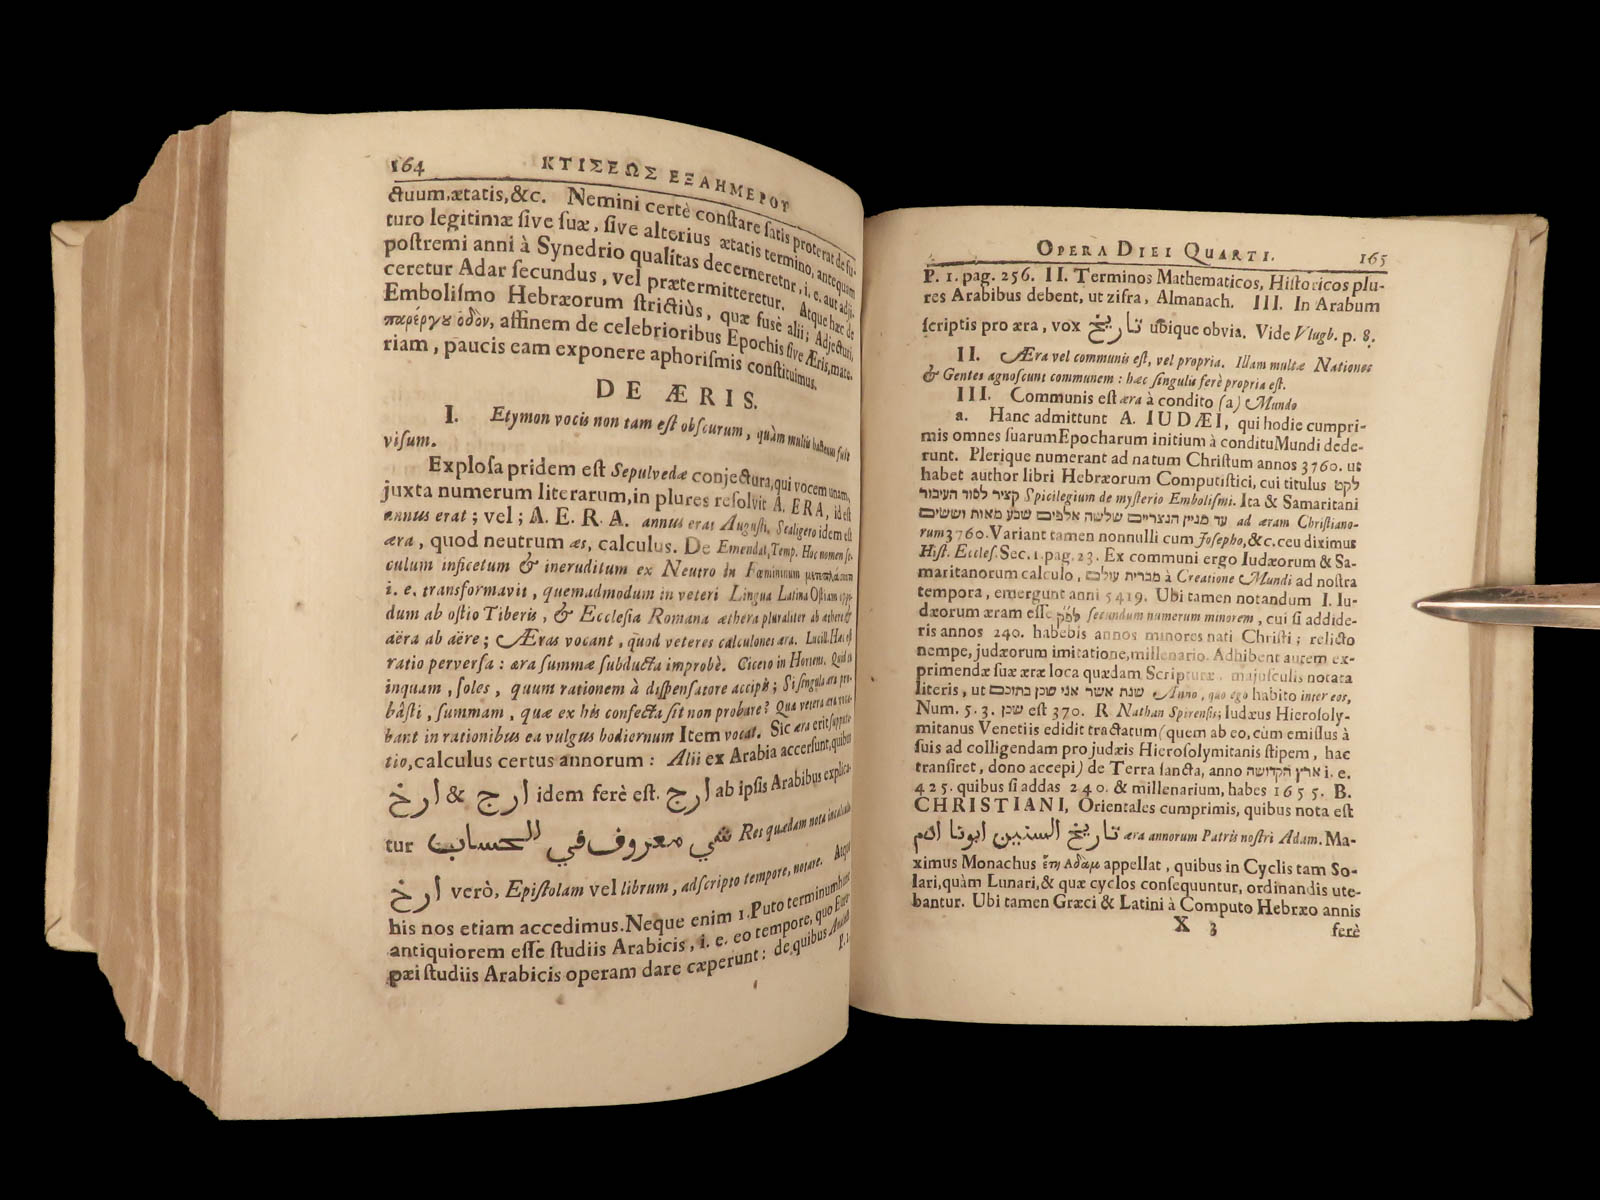 164 ΚΤΙΣΕΩΣ ΕΞΑΗΜΕΡΟΥ
ctuum, ætatis, &c. Nemini certè conſtare ſatis proterat de fu-
turo legitimæ ſive ſuæ, ſive alterius ætatis termino, antequam
poſtremi anni à Synedrio qualitas decerneretnr, i. e. aut adji-
ceretur Adar ſecundus, vel prætermitteretur. Atque hæc de
Emboliſmo Hebræorum ſtrictiùs, quæ fuſè alii; Adjecturi,
παρέργȣ ὁδὸν, affinem de celebrioribus Epochis ſive Æris, mate-
riam, paucis eam exponere aphoriſmis conſtituimus.
DE ÆRIS.
I. Etymon vocis non tam eſt obſcurum, quàm multis hactenus fuit
viſum.
Exploſa pridem eſt Sepulvedæ conjectura, qui vocem unam,
juxta numerum literarum, in plures reſolvit A. ERA, id eſt
annus erat; vel; A. E. R. A. annus erat Auguſti. Scaligero idem eſt
æra, quod neutrum æs, calculus. De Emendat, Temp. Hoc nomen ſe-
culum inficetum & ineruditum ex Neutro in Fœmininum
i. e. transformavit, quemadmodum in veteri Lingua Latina Oſtiam
dum ab oſtio Tiberis, & Eccleſia Romana æthera pluraliter ab æthere &
aëra ab aëre; Æras vocant, quod veteres calculones æra. Lucill. Hæc eſt
ratio perverſa: æra ſummæ ſubducta improbè. Cicero in Hortens. Quid tu
inquam, ſoles, quum rationem à diſpenſatore accipis; Si ſingula æra pro-
bâſti, ſummam, quæ ex his confecta ſit non probare? Qua vetera æra voca-
bant in rationibus ea vulgus hodiernum Item vocat. Sic æra erit ſupputa-
tio, calculus certus annorum: Alii ex Arabia accerſunt, quibus
ارخ & ارج idem ferè eſt. ارج ab ipſis Arabibus explica-
tur شي معروف في الحساب Res quædam nota in calculo
ارخ verò, Epiſtolam vel librum, adſcripto tempore, notare. Atque
his nos etiam accedimus. Neque enim 1. Puto terminum hunc
antiquiorem eſſe ſtudiis Arabicis, i. e. eo tempore, quo Euro-
pæi ſtudiis Arabicis operam dare cæperunt: de quibus
P. 1.
OPERA DIEI QUARTI. 165
P. 1. pag. 256. II. Terminos Mathematicos, Hiſtoricos plu-
res Arabibus debent, ut zifra, Almanach. III. In Arabum
ſcriptis pro æra, vox تاريخ ubique obvia. Vide Vlugb. p. 8.
II. Æra vel communis eſt, vel propria. Illam multæ Nationes
& Gentes agnoſcunt communem: hæc ſingulis ferè propria eſt.
III. Communis eſt æra à condito (a) Mundo
a. Hanc admittunt A. IUDÆI, qui hodie cumpri-
mis omnes ſuarum Epocharum initium à conditu Mundi dede-
runt. Plerique numerant ad natum Chriſtum annos 3760. ut
habet author libri Hebræorum Computiſtici, cui titulus לקט
קציר לסוד העיבור Spicilegium de myſterio Emboliſmi. Ita & Samaritani
עד מנין הנצריים שלשה אלפים שבע מאות וששים ad æram Chriſtiano-
rum 3760. Variant tamen nonnulli cum Joſepho, &c. ceu diximus
Hiſt. Eccleſ. Sec. 1. pag. 23. Ex communi ergo Iudæorum & Sa-
maritanorum calculo, מבריית עולם à Creatione Mundi ad noſtra
tempora, emergunt anni 5419. Ubi tamen notandum I. Iu-
dæorum æram eſſe לפ״ק ſecundum numerum minorem, cui ſi addide-
ris annos 240. habebis annos minores nati Chriſti; relicto
nempe, judæorum imitatione, millenario. Adhibent autem ex-
primendæ ſuæ æræ loca quædam Scripturæ, majuſculis notata
literis, ut שנת אשר אני שכן בתוכם Anno, quo ego habito inter eos,
Num. 5. 3. שכן eſt 370. R Nathan Spirenſis; Iudæus Hieroſoly-
mitanus Venetiis edidit tractatum (quem ab eo, cùm emiſſus à
ſuis ad colligendam pro judæis Hieroſolymitanis ſtipem, hac
tranſiret, dono accepi) de Terra ſancta, anno ארץ הקדושה i. e.
425. quibus ſi addas 240. & millenarium, habes 1655. B.
CHRISTIANI, Orientales cumprimis, quibus nota eſt
تاريخ السنين ابونا ادم æra annorum Patris noſtri Adam. Ma-
ximus Monachus ἔτη Αδὰμ appellat, quibus in Cyclis tam So-
lari, quàm Lunari, & quæ cyclos conſequuntur, ordinandis ute-
bantur. Ubi tamen Græci & Latini à Computo Hebræo annis
X 3 ferè